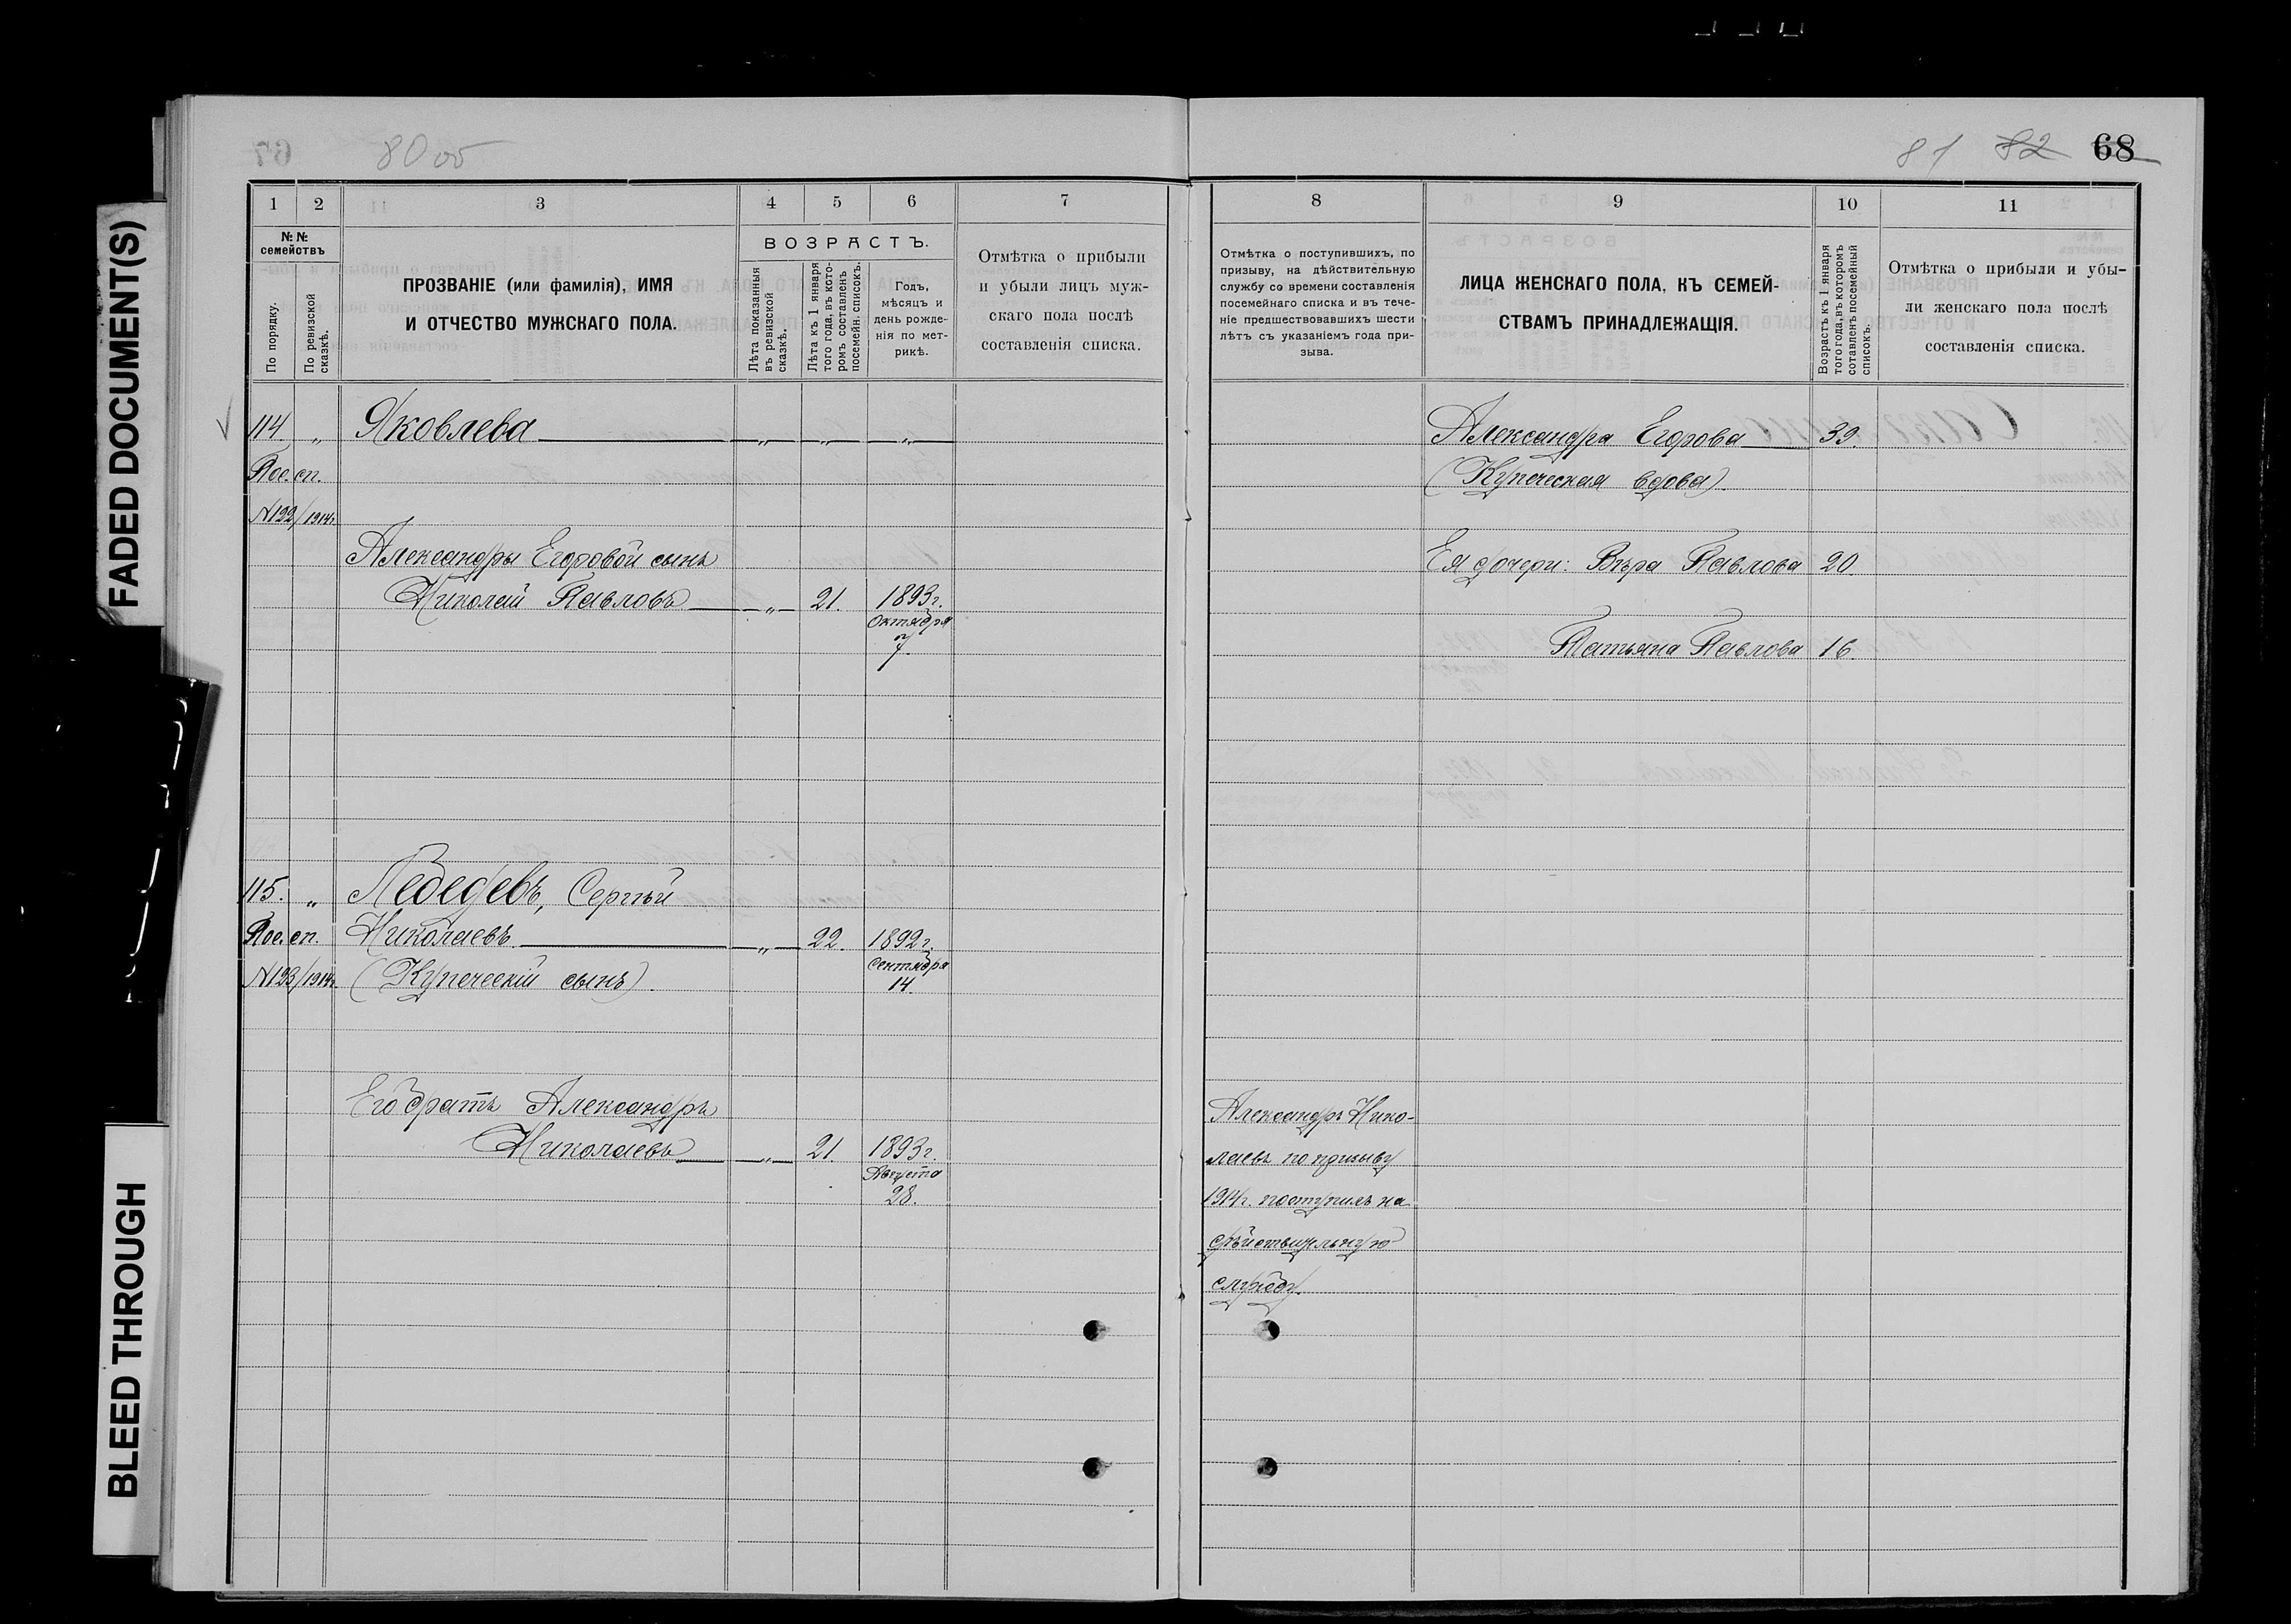 FADED DOCUMENT(S)
BLEED THROUGH
80 об
81 82 68
1 2 3 4 5 6 7
№ № семействъ
По порядку.
По ревизской сказкѣ.
ПРОЗВАНІЕ (или фамилія), ИМЯ
И ОТЧЕСТВО МУЖСКАГО ПОЛА.
ВОЗРАСТЪ.
Лѣта показанныя
въ ревизской
сказкѣ.
Лѣта къ 1 января
того года, въ кото-
ромъ составленъ
посемейн. списокъ.
Годъ,
мѣсяцъ и
день рожде-
нія по мет-
рикѣ.
Отмѣтка о прибыли
и убыли лицъ муж-
скаго пола послѣ
составленія списка.
8 9 10 11
Отмѣтка о поступившихъ, по
призыву, на дѣйствительную
службу со времени составленія
посемейнаго списка и въ тече-
ніе предшествовавшихъ шести
лѣтъ съ указаніемъ года при-
зыва.
ЛИЦА ЖЕНСКАГО ПОЛА, КЪ СЕМЕЙ-
СТВАМЪ ПРИНАДЛЕЖАЩІЯ.
Возрастъ къ 1 января
того года, въ которомъ
составленъ посемейный
списокъ.
Отмѣтка о прибыли и убы-
ли женскаго пола послѣ
составленія списка.
114 „ Яковлева — „ — „ — „ —
Пос. сп.
№122/1914г.
Александры Егоровой сынъ
Николай Павловъ — „ — 21. 1893г.
Октября
7.
Александра Егорова — 39.
(Купеческая вдова).
Ея дочери: Вѣра Павлова 20.
Татьяна Павлова 16.
115. „ Лебедевъ, Сергѣй
Пос. сп. Николаевъ. — „ — 22. 1892г.
№123/1914г. (Купеческій сынъ).
Сентября
14.
Его братъ Александръ
Николаевъ — „ — 21. 1893г.
Августа
28.
Александръ Нико-
лаевъ по призыву
1914г. поступилъ на
дѣйствительную
службу.